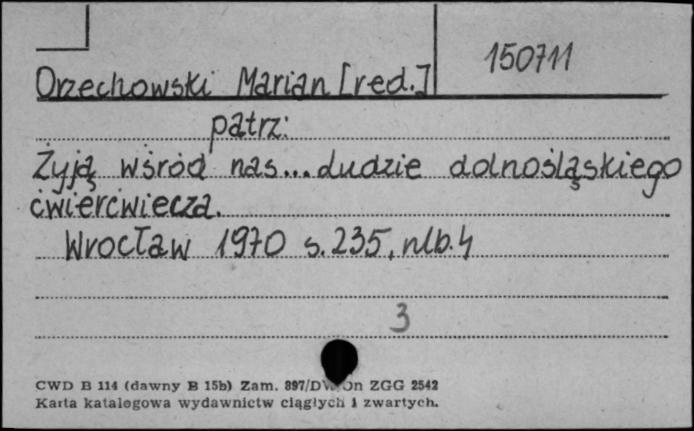 150711
Orzechowski Marian [red.]
patrz:
Żyją wśród nas... dudzie dolnośląskiego
ćwierćwiecza.
Wrocław 1970 s. 235, nlb. 4
3
CWD B 114 (dawny B 15b) Zam. 897/DW/On ZGG 2542
Karta katalogowa wydawnictw ciągłych i zwartych.